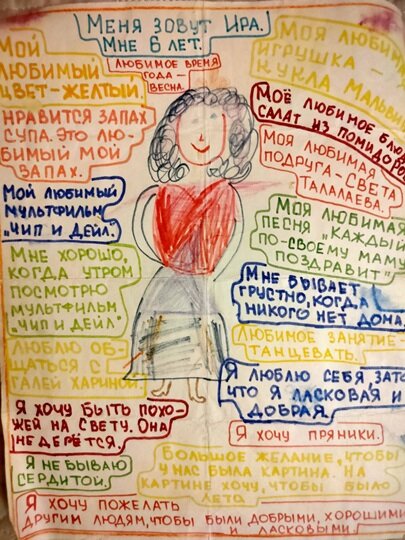 Меня зовут Ира.
Мне 6 лет.
Любимое время
года –
весна.
Мой
любимый
цвет – желтый.
Нравится запах
супа. Это лю-
бимый мой
запах.
Мой любимый
мультфильм
„Чип и Дейл".
Мне хорошо,
когда утром
посмотрю
мультфильм
„Чип и Дейл"
Люблю об-
щаться с
Галей Хариной.
Я хочу быть похо-
жей на Свету. Она
не дерётся.
Я не бываю
сердитой.
Моя любим
игрушка
кукла Мальвин
Моё любимое блю
салат из помидоро
Моя любимая
подруга – Света
Талалаева.
Моя любимая
песня „Каждый
по-своему маму
поздравит"
Мне бывает
грустно, когда
никого нет дона.
Любимое занятие –
танцевать.
Я люблю себя, зато
что я ласковая и
добрая.
Я хочу пряники.
Большое желание, чтобы
у нас была картина. На
картине хочу, чтобы было
лето
Я хочу пожелать
другим людям, чтобы были добрыми, хорошими
и ласковыми.